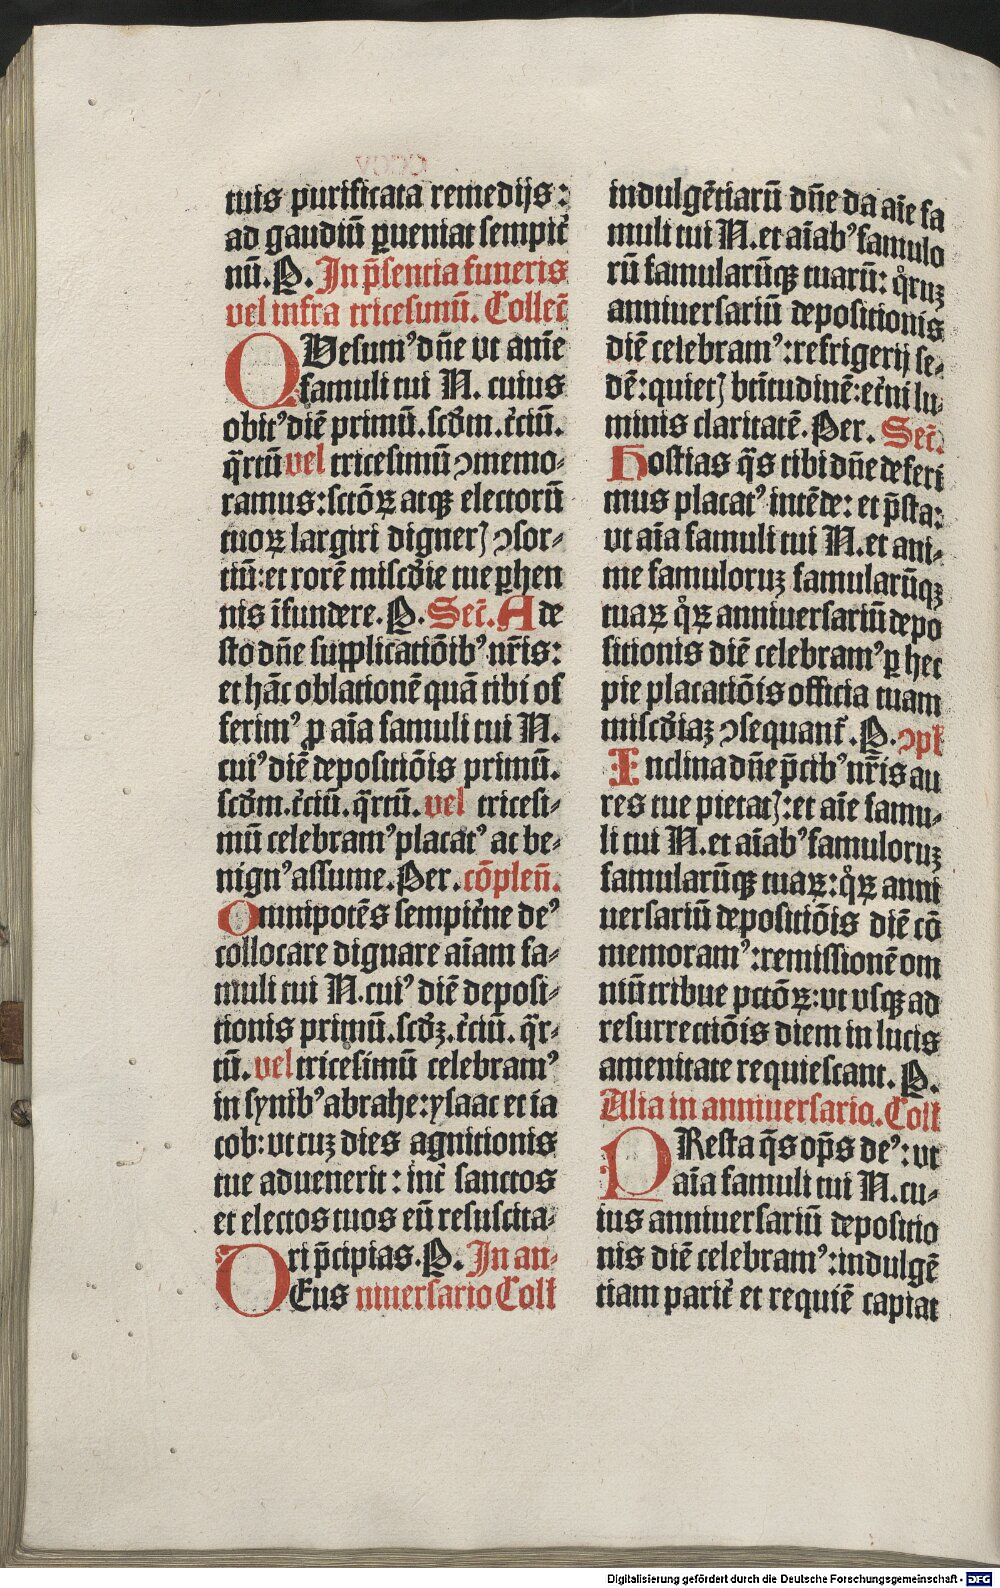 tuis purificata remedijs:
ad gaudiū ꝑueniat sempit̄
nū. P. In p̄sentia funeris
vel infra tricesimū. Collec̄
QUesumꝰ dn̄e vt anīe
famuli tui N. cuius
obitꝰ diē primū. scd̄m. t̄ciū.
q̄rtū vel tricesimū ꝯmemo-
ramus: sctōꝝ atqꝫ electorū
tuoꝝ largiri dignerꝭ ꝯsor-
tiū: et rorē miscd̄ie tue ꝑhen
nis īfundere. P. Sec̄. Ade
sto dn̄e supplicatiōibꝰ nr̄is:
et hāc oblationē quā tibi of
ferimꝰ ꝓ aīa famuli tui N.
cuiꝰ diē depositiōis primū.
scd̄m. t̄ciū. q̄rtū. vel tricesi-
mū celebramꝰ placatꝰ ac be-
nignꝰ assume. Per. cōplen̄.
Omnipotēs sempit̄ne deꝰ
collocare dignare aīam fa-
muli tui N. cuiꝰ diē deposi-
tionis primū. scd̄ꝫ. t̄ciū. q̄r-
tū. vel tricesimū celebramꝰ
in synibꝰ abrahe: ysaac et ia
cob: vt cuꝫ dies agnitionis
tue aduenerit: int̄ sanctos
et electos tuos eū resuscita-
ri p̄cipias. P. In an-
DEus niuersario Coll̄
indulgētiarū dn̄e da aīe fa
muli tui N. et aīabꝰ famulo
rū famularūqꝫ tuarū: qͦruꝫ
anniuersariū depositionis
diē celebramꝰ: refrigerij se-
dē: quietꝭ btītudinē: et̄ni lu-
minis claritatē. Per. Sec̄.
Hostias q̄s tibi dn̄e deferi
mus placatꝰ intēde: et p̄sta:
vt aīa famuli tui N. et ani-
me famuloruꝫ famularūqꝫ
tuaꝝ qͦꝝ anniuersariū depo
sitionis diē celebramꝰ ꝑ hec
pie placatiōis officia tuam
miscd̄iaꝫ ꝯsequant̄. P. ꝯpl̄
Inclina dn̄e p̄cibꝰ nr̄is au
res tue pietatꝭ: et aīe famu-
li tui N. et aīabꝰ famuloruꝫ
famularūqꝫ tuaꝝ: qͦꝝ anni
uersariū depositiōis diē cō
memoramꝰ: remissionē om
niū tribue pctōꝝ: vt vsqꝫ ad
resurrectiōis diem in lucis
amenitate requiescant. P.
Alia in anniuersario. Coll̄
PResta q̄s opn̄s deꝰ: vt
aīa famuli tui N. cu-
ius anniuersariū depositio
nis diē celebramꝰ: indulgē
tiam parit̄ et requiē capiat
Digitalisierung gefördert durch die Deutsche Forschungsgemeinschaft - DFG